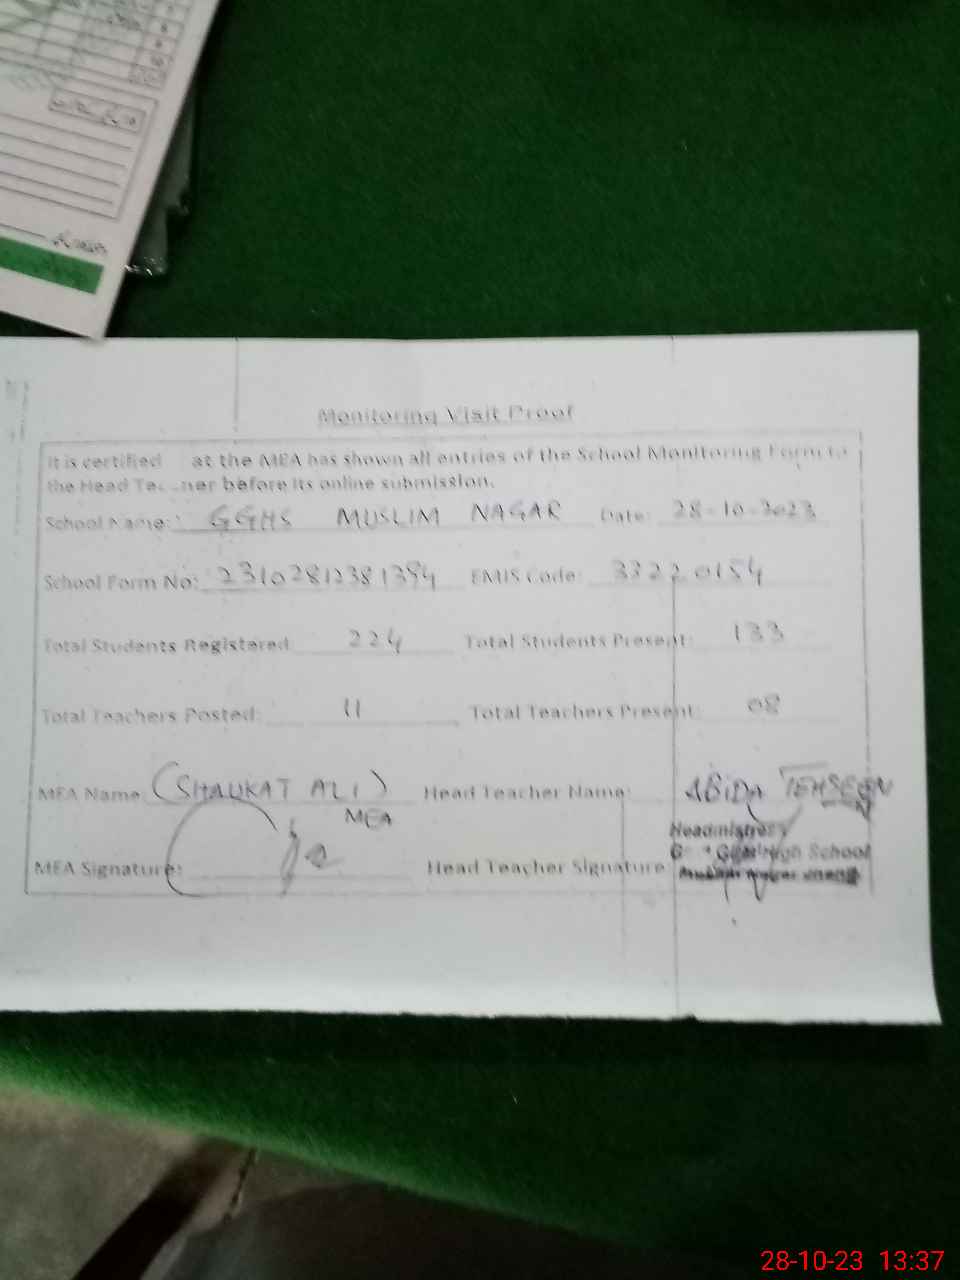 Monitoring Visit Proof
It is certified at the MEA has shown all entries of the School Monitoring Form to
the Head Te her before its online submission.
School Name: GGHS MUSLIM NAGAR Date: 28-10-2023
School Form No: EMIS Code: 33220154
Total Students Registered: 224 Total Students Present: 133
Total Teachers Posted: 11 Total Teachers Present: 08
MEA Name: (SHAUKAT ALI) Head Teacher Name: ABIDA TEHSEEN
MEA
Headmistress
MEA Signature: Head Teacher Signature: High School
28-10-23 13:37